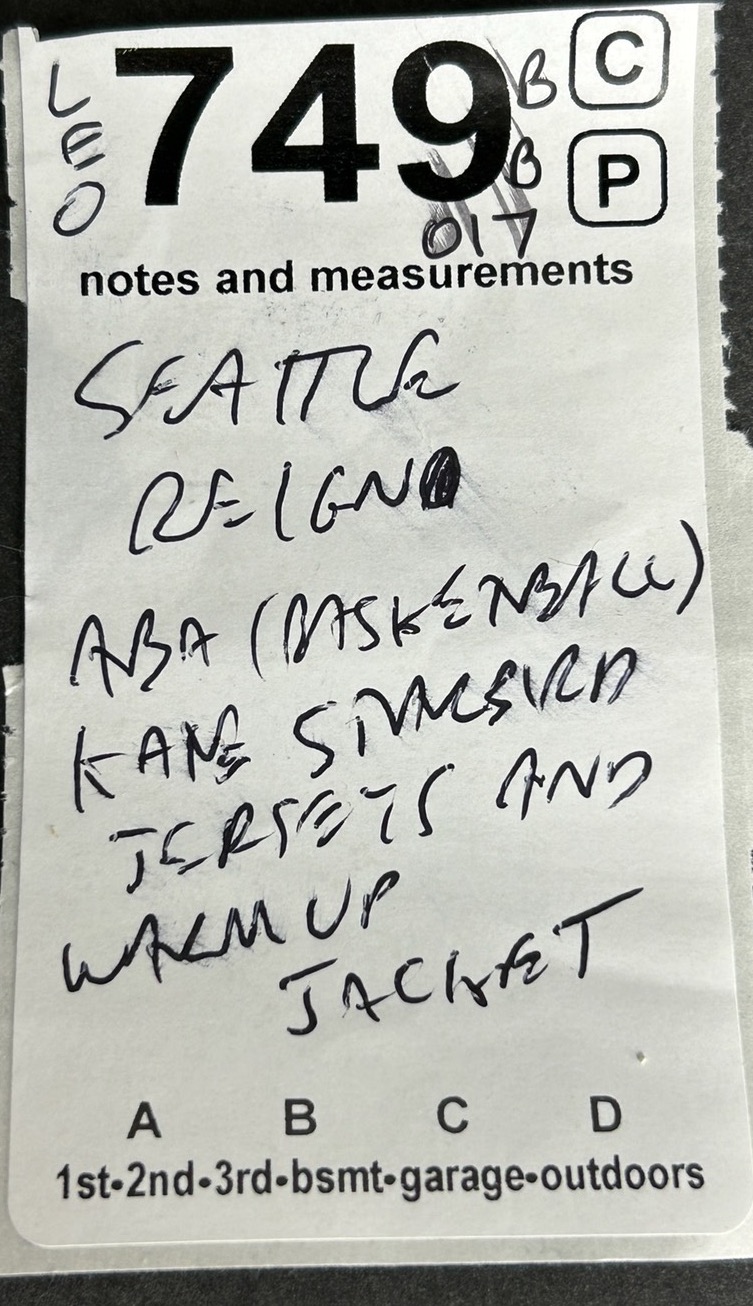 LEO
749
B
B
017
C
P
notes and measurements
SEATTLE
REIGN
ABA (BASKETBALL)
KANE
JERSEYS AND
WARM UP
JACKET
A B C D
1st•2nd•3rd•bsmt•garage•outdoors